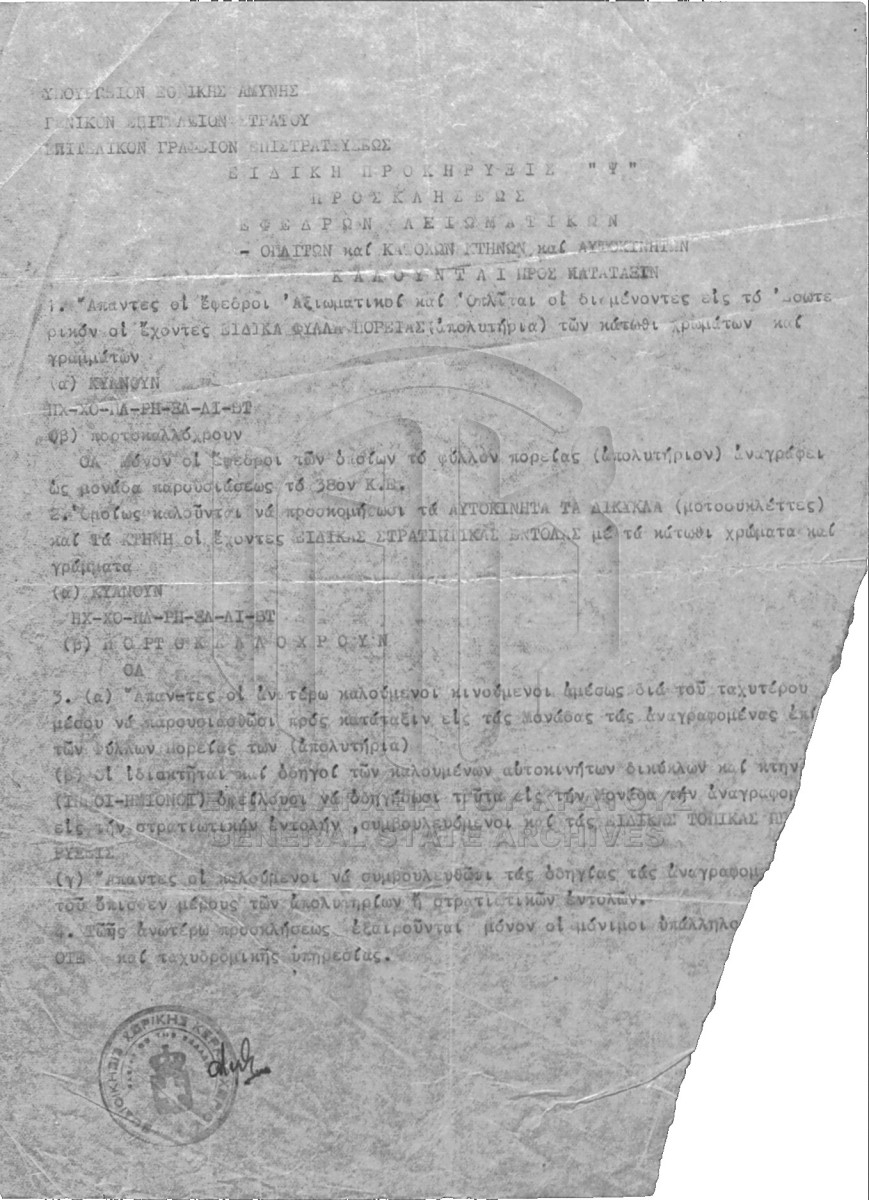 ΥΠΟΥΡΓΕΙΟΝ ΕΘΝΙΚΗΣ ΑΜΥΝΗΣ
ΓΕΝΙΚΟΝ ΕΠΙΤΕΛΕΙΟΝ ΣΤΡΑΤΟΥ
ΕΠΙΤΕΛΙΚΟΝ ΓΡΑΦΕΙΟΝ ΕΠΙΣΤΡΑΤΕΥΣΕΩΣ
ΕΙΔΙΚΗ ΠΡΟΚΗΡΥΞΙΣ "Ψ"
ΠΡΟΣΚΛΗΣΕΩΣ
ΕΦΕΔΡΩΝ ΑΞΙΩΜΑΤΙΚΩΝ
- ΟΠΛΙΤΩΝ καί ΚΑΤΟΧΩΝ ΚΤΗΝΩΝ καί ΑΥΤΟΚΙΝΗΤΩΝ
ΚΑΛΟΥΝΤΑΙ ΠΡΟΣ ΚΑΤΑΤΑΞΙΝ
1. Ἅπαντες οἱ Ἔφεδροι Ἀξιωματικοί καί Ὁπλῖται οἱ διαμένοντες εἰς τό Ἐσωτε
ρικόν οἱ ἔχοντες ΕΙΔΙΚΑ ΦΥΛΛΑ ΠΟΡΕΙΑΣ(ἀπολυτήρια) τῶν κάτωθι χρωμάτων καί
γραμμάτων
(α) ΚΥΑΝΟΥΝ
ΠΧ-ΧΟ-ΠΛ-ΡΗ-ΕΛ-ΛΙ-ΒΤ
(β) πορτοκαλλόχρουν
ΟΛ μόνον οἱ ἔφεδροι τῶν ὁποίων τό φύλλον πορείας (ἀπολυτήριον) ἀναγράφει
ὡς μονάδα παρουσιάσεως τό 38ον Κ.Ε.
2. Ὁμοίως καλοῦνται νά προσκομίσωσι τά ΑΥΤΟΚΙΝΗΤΑ ΤΑ ΔΙΚΥΚΛΑ (μοτοσυκλέττες)
καί Τά ΚΤΗΝΗ οἱ ἔχοντες ΕΙΔΙΚΑΣ ΣΤΡΑΤΙΩΤΙΚΑΣ ΕΝΤΟΛΑΣ μέ τά κάτωθι χρώματα καί
γράμματα
(α) ΚΥΑΝΟΥΝ
ΠΧ-ΧΟ-ΠΛ-ΡΗ-ΕΛ-ΛΙ-ΒΤ
(β) ΠΟΡΤΟΚΑΛΟΧΡΟΥΝ
ΟΛ
3. (α) Ἅπαντες οἱ ἀνωτέρω καλούμενοι κινούμενοι ἀμέσως διά τοῦ ταχυτέρου
μέσου νά παρουσιασθῶσι πρός κατάταξιν εἰς τάς Μονάδας τάς ἀναγραφομένας ἐπί
τῶν Φύλλων πορείας των (ἀπολυτήρια)
(β) Οἱ ἰδιοκτῆται καί ὁδηγοί τῶν καλουμένων αὐτοκινήτων δικύκλων καί κτην
(ΙΠΠΟΙ-ΗΜΙΟΝΟΙ) ὀφείλουσι νά ὁδηγήσωσι ταῦτα εἰς τήν Μονάδα τήν ἀναγραφομ
εἰς τήν στρατιωτικήν ἐντολήν ,συμβουλευόμενοι καί τάς ΕΙΔΙΚΑΣ ΤΟΠΙΚΑΣ Π
ΡΥΞΕΙΣ
(γ) Ἅπαντες οἱ καλούμενοι νά συμβουλευθῶσι τάς ὁδηγίας τάς ἀναγραφομ
τοῦ ὄπισθεν μέρους τῶν ἀπολυτηρίων ἤ στρατιωτικῶν ἐντολῶν.
4. Τῆς ἀνωτέρω προσκλήσεως ἐξαιροῦνται μόνον οἱ μόνιμοι ὑπάλληλο
ΟΤΕ καί ταχυδρομικῆς υπηρεσίας.
GENERAL STATE ARCHIVES